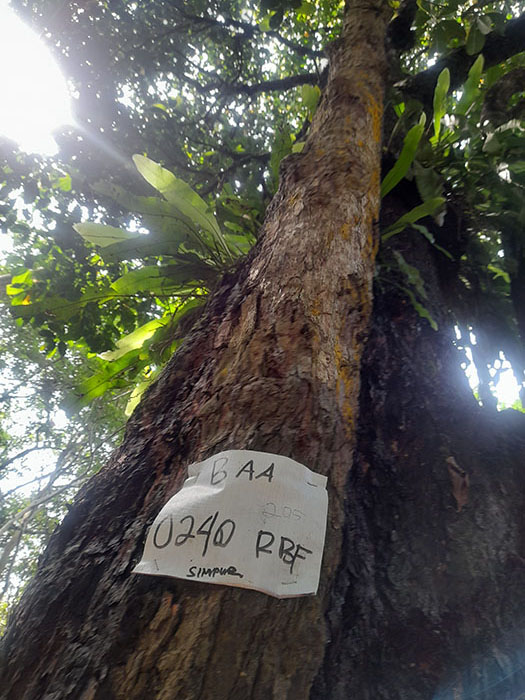 B AA
205
0240 RBF
SIMPUR